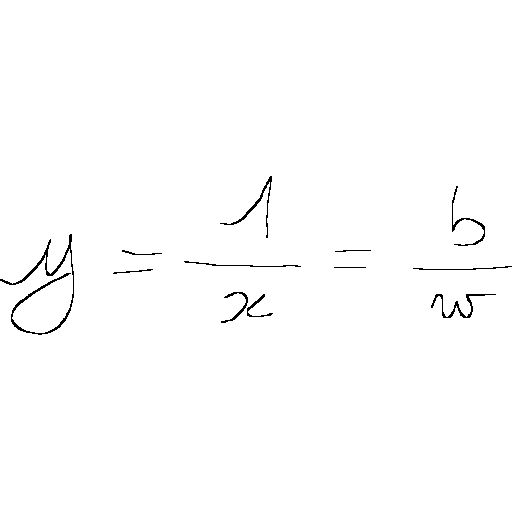 y = \frac{1}{x} = \frac{b}{w}